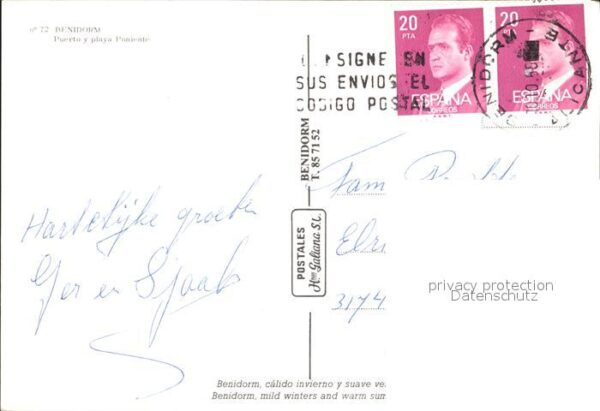 nº 72 BENIDORM
Puerto y playa Poniente
20
PTA
ESPAÑA
CORREOS
20
ESPAÑA
CORREOS
SIGNE EN
SUS ENVIOS EL
CODIGO POSTAL
BENIDORM
ALICANTE
BENIDORM
T. 85 71 52
POSTALES
Hnos Galiana S.L.
Hartelijke groeten
Ger en Sjaak
Fam
Elr
3174
privacy protection
Datenschutz
Benidorm, cálido invierno y suave ve
Benidorm, mild winters and warm sum